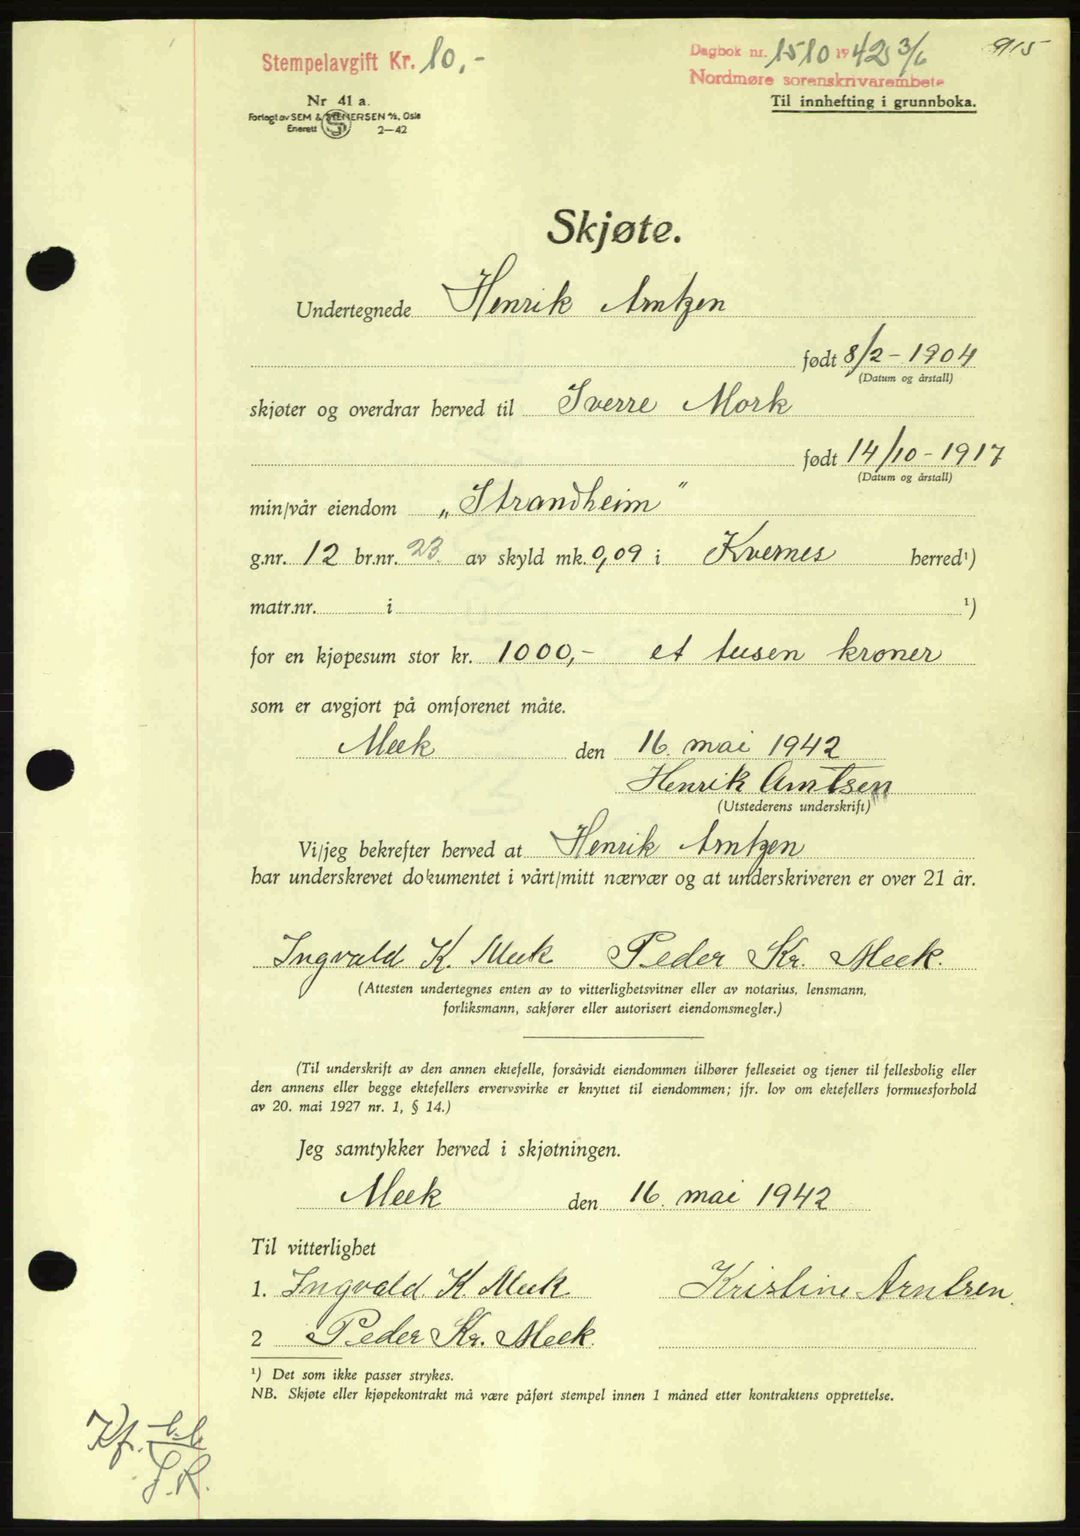 915
Stempelavgift Kr. 10,-
Dagbok nr. 1510 1942 3/6
Nordmøre sorenskrivarembete
Nr 41 a.
Til innhefting i grunnboka.
Forlagt av SEM & STENERSEN A/S, Oslo
Enerett S 2—42
Skjøte.
Undertegnede Henrik Arntzen
født 8/2 - 1904
(Datum og årstall)
skjøter og overdrar herved til Sverre Mork
født 14/10 - 1917
(Datum og årstall)
min/vår eiendom „Strandheim”
g.nr. 12 br.nr. 23 av skyld mk. 0,09 i Kvernes herred¹)
matr.nr. i ¹)
for en kjøpesum stor kr. 1000,- et tusen kroner
som er avgjort på omforenet måte.
Meek den 16. mai 1942
Henrik Arntsen
(Utstederens underskrift)
Vi/jeg bekrefter herved at Henrik Arntzen
har underskrevet dokumentet i vårt/mitt nærvær og at underskriveren er over 21 år.
Ingvald K. Meek Peder Kr. Meek.
(Attesten undertegnes enten av to vitterlighetsvitner eller av notarius, lensmann,
forliksmann, sakfører eller autorisert eiendomsmegler.)
(Til underskrift av den annen ektefelle, forsåvidt eiendommen tilhører felleseiet og tjener til fellesbolig eller
den annens eller begge ektefellers ervervsvirke er knyttet til eiendommen; jfr. lov om ektefellers formuesforhold
av 20. mai 1927 nr. 1, § 14.)
Jeg samtykker herved i skjøtningen.
Meek den 16. mai 1942
Til vitterlighet
1. Ingvald K. Meek Kristine Arntsen.
2 Peder Kr. Meek.
¹) Det som ikke passer strykes.
NB. Skjøte eller kjøpekontrakt må være påført stempel innen 1 måned etter kontraktens opprettelse.
Kf.
J.R.